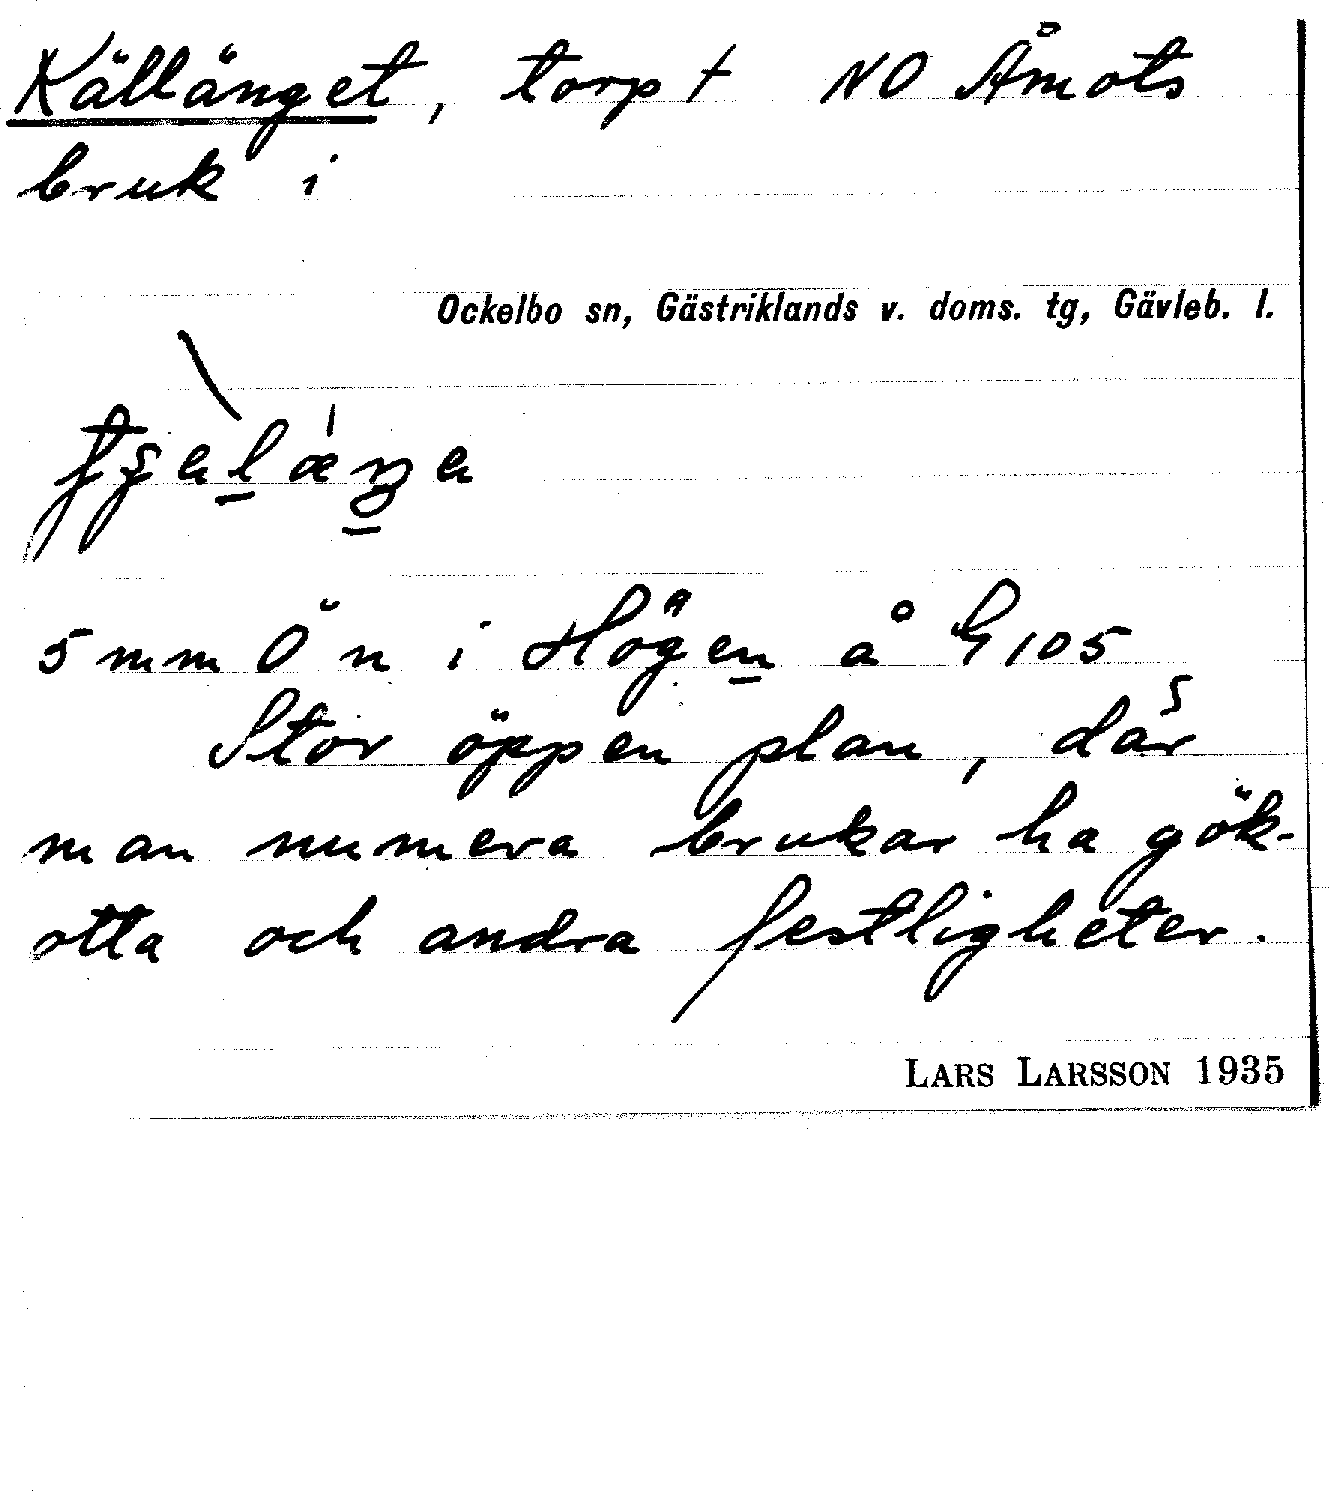 Källänget, torp † NO Åmots
bruk i
Ockelbo sn, Gästriklands v. doms. tg, Gävleb. l.
5 mm Ö n i Högen å G 105
Stor öppen plan, där
man numera brukar ha gök-
otta och andra festligheter.
LARS LARSSON 1935